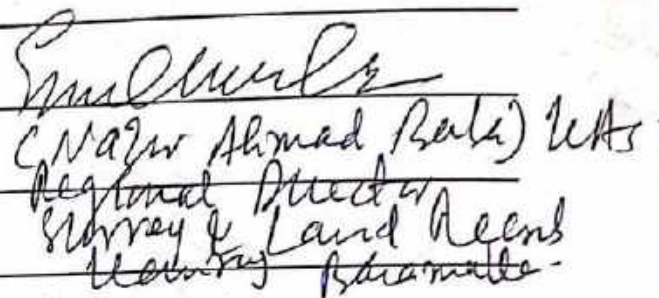 (Nazir Ahmad Baba) KAS
Regional Director
Survey & Land Records
Baramulla